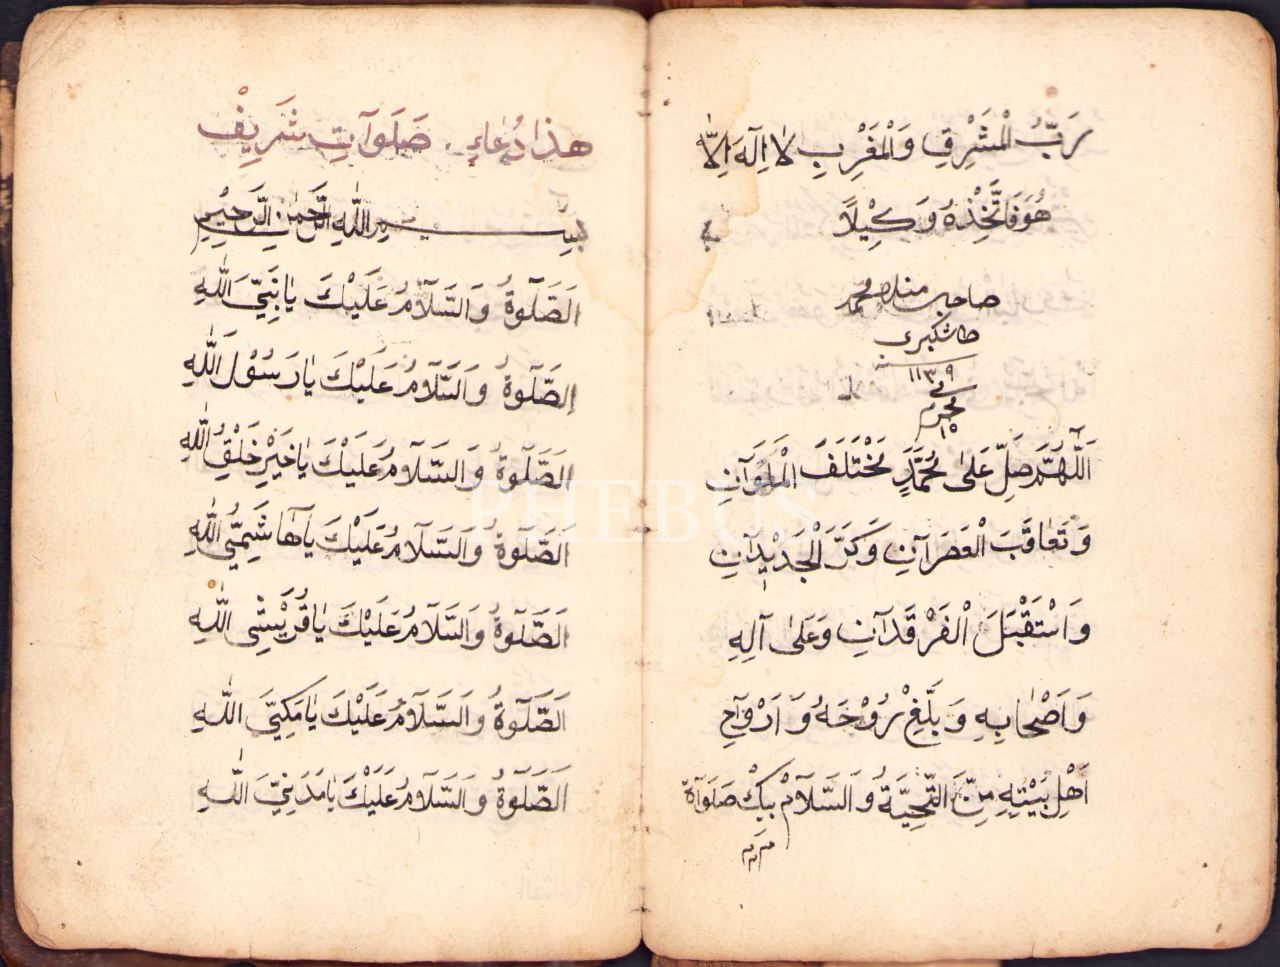 رَبُّ الْمَشْرِقِ وَالْمَغْرِبِ لَا اِلَهَ اِلَّا
هُوَ فَاتَّخِذْهُ وَكِيْلاً
صاحب منلا محمد
طاشكبرى
سنة ١١٣٩
فى
محرم
١٥
اَللّٰهُمَّ صَلِّ عَلٰى مُحَمَّدٍ مَخْتَلَفَ الْمَلَوَآنِ
وَتَعَاقَبَ الْعَصَرَآنِ وَكَرَّ الْجَدْيِدَآنِ
وَاسْتَقْبَلَ الْفَرْقَدَآنِ وَعَلٰى آلِهِ
وَاَصْحَابِهِ وَبَلِّغْ رُوْحَهُ وَاَرْوَآحِ
اَهْلِ بَيْتِهِ مِنَّ التَّحِيَّةُ وَالسَّلَآمْ بيك صَلَوَاة
هذا دُعَاءِ صَلَوَآتِ شَرِيفْ
بسم اللّٰهِ الرَّحْمٰنِ الرَّحِيْمِ
اَلصَّلَوةُ وَالسَّلَآمُ عَلَيْكَ يَا نَبِيَّ اللّٰهِ
اَلصَّلَوةُ وَالسَّلَآمُ عَلَيْكَ يَا رَسُوْلَ اللّٰهِ
اَلصَّلَوةُ وَالسَّلَآمُ عَلَيْكَ يَا خَيْرِ خَلْقِ اللّٰهِ
اَلصَّلَوةُ وَالسَّلَآمُ عَلَيْكَ يَا هَاشَمِيُّ اللّٰهِ
اَلصَّلَوةُ وَالسَّلَآمُ عَلَيْكَ يَا قُرَيْشِى اللّٰهِ
اَلصَّلَوةُ وَالسَّلَآمُ عَلَيْكَ يَا مَكِيَّ اللّٰهِ
اَلصَّلَوةُ وَالسَّلَآمُ عَلَيْكَ يَا مَدَنِيَّ اللّٰهِ
PHEBUS